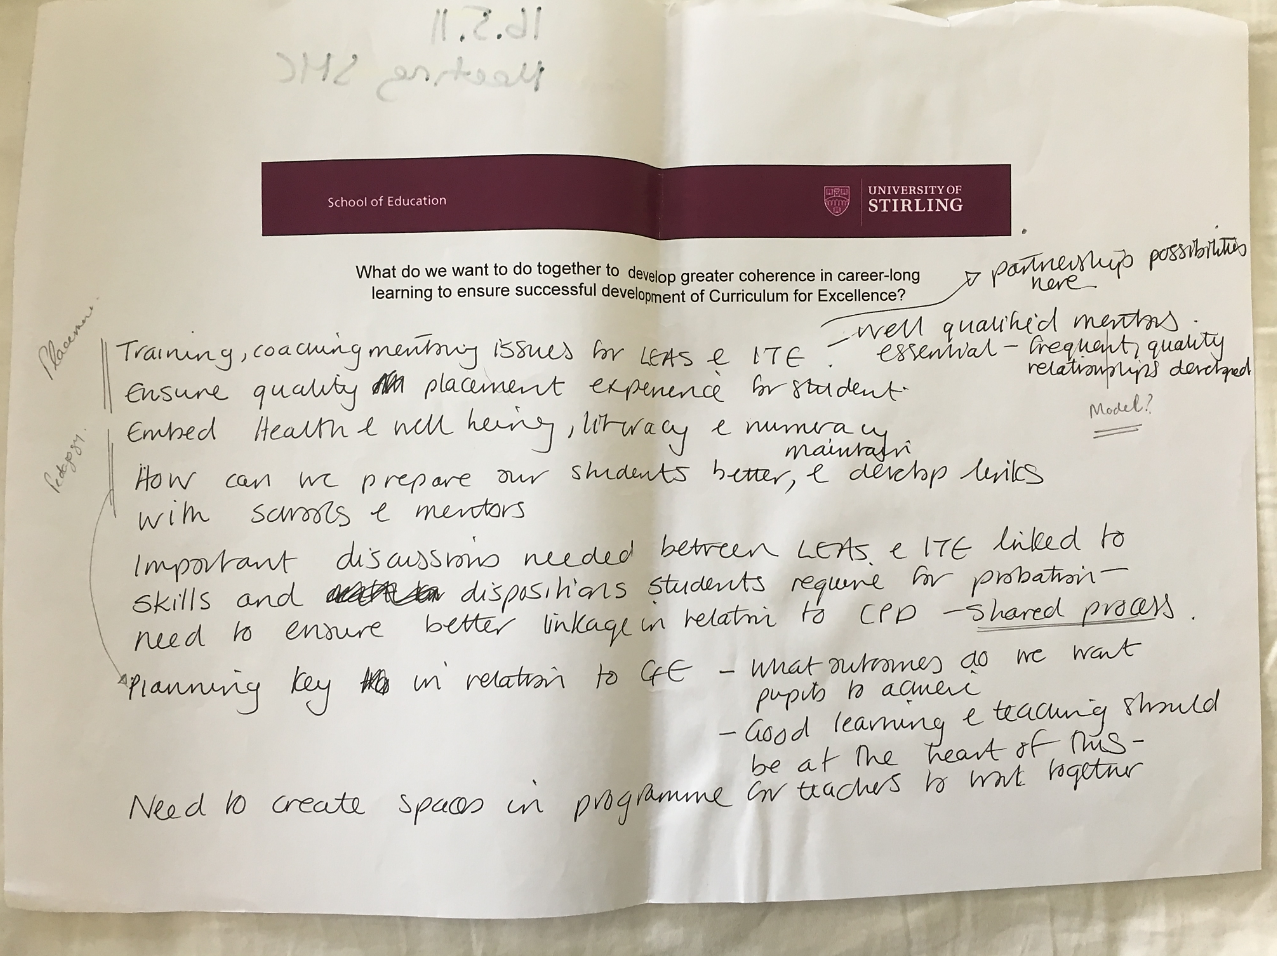 16.5.11
Meeting SMC
School of Education
UNIVERSITY OF
STIRLING
What do we want to do together to develop greater coherence in career-long
learning to ensure successful development of Curriculum for Excellence?
partnership possibilities
here
Placement
Training, coaching mentoring issues for LEAS & ITE - well qualified mentors.
essential - frequent, quality
relationships developed
Ensure quality placement experience for student.
Model?
Embed Health & well being, literacy & numeracy
Pedagogy.
maintain
How can we prepare our students better, & develop links
with schools & mentors
Important discussions needed between LEAS & ITE linked to
skills and dispositions students require for probation -
need to ensure better linkage in relation to CPD - shared process.
Planning key in relation to CfE - what outcomes do we want
pupils to achieve
- Good learning & teaching should
be at the heart of this -
Need to create spaces in programme for teachers to work together